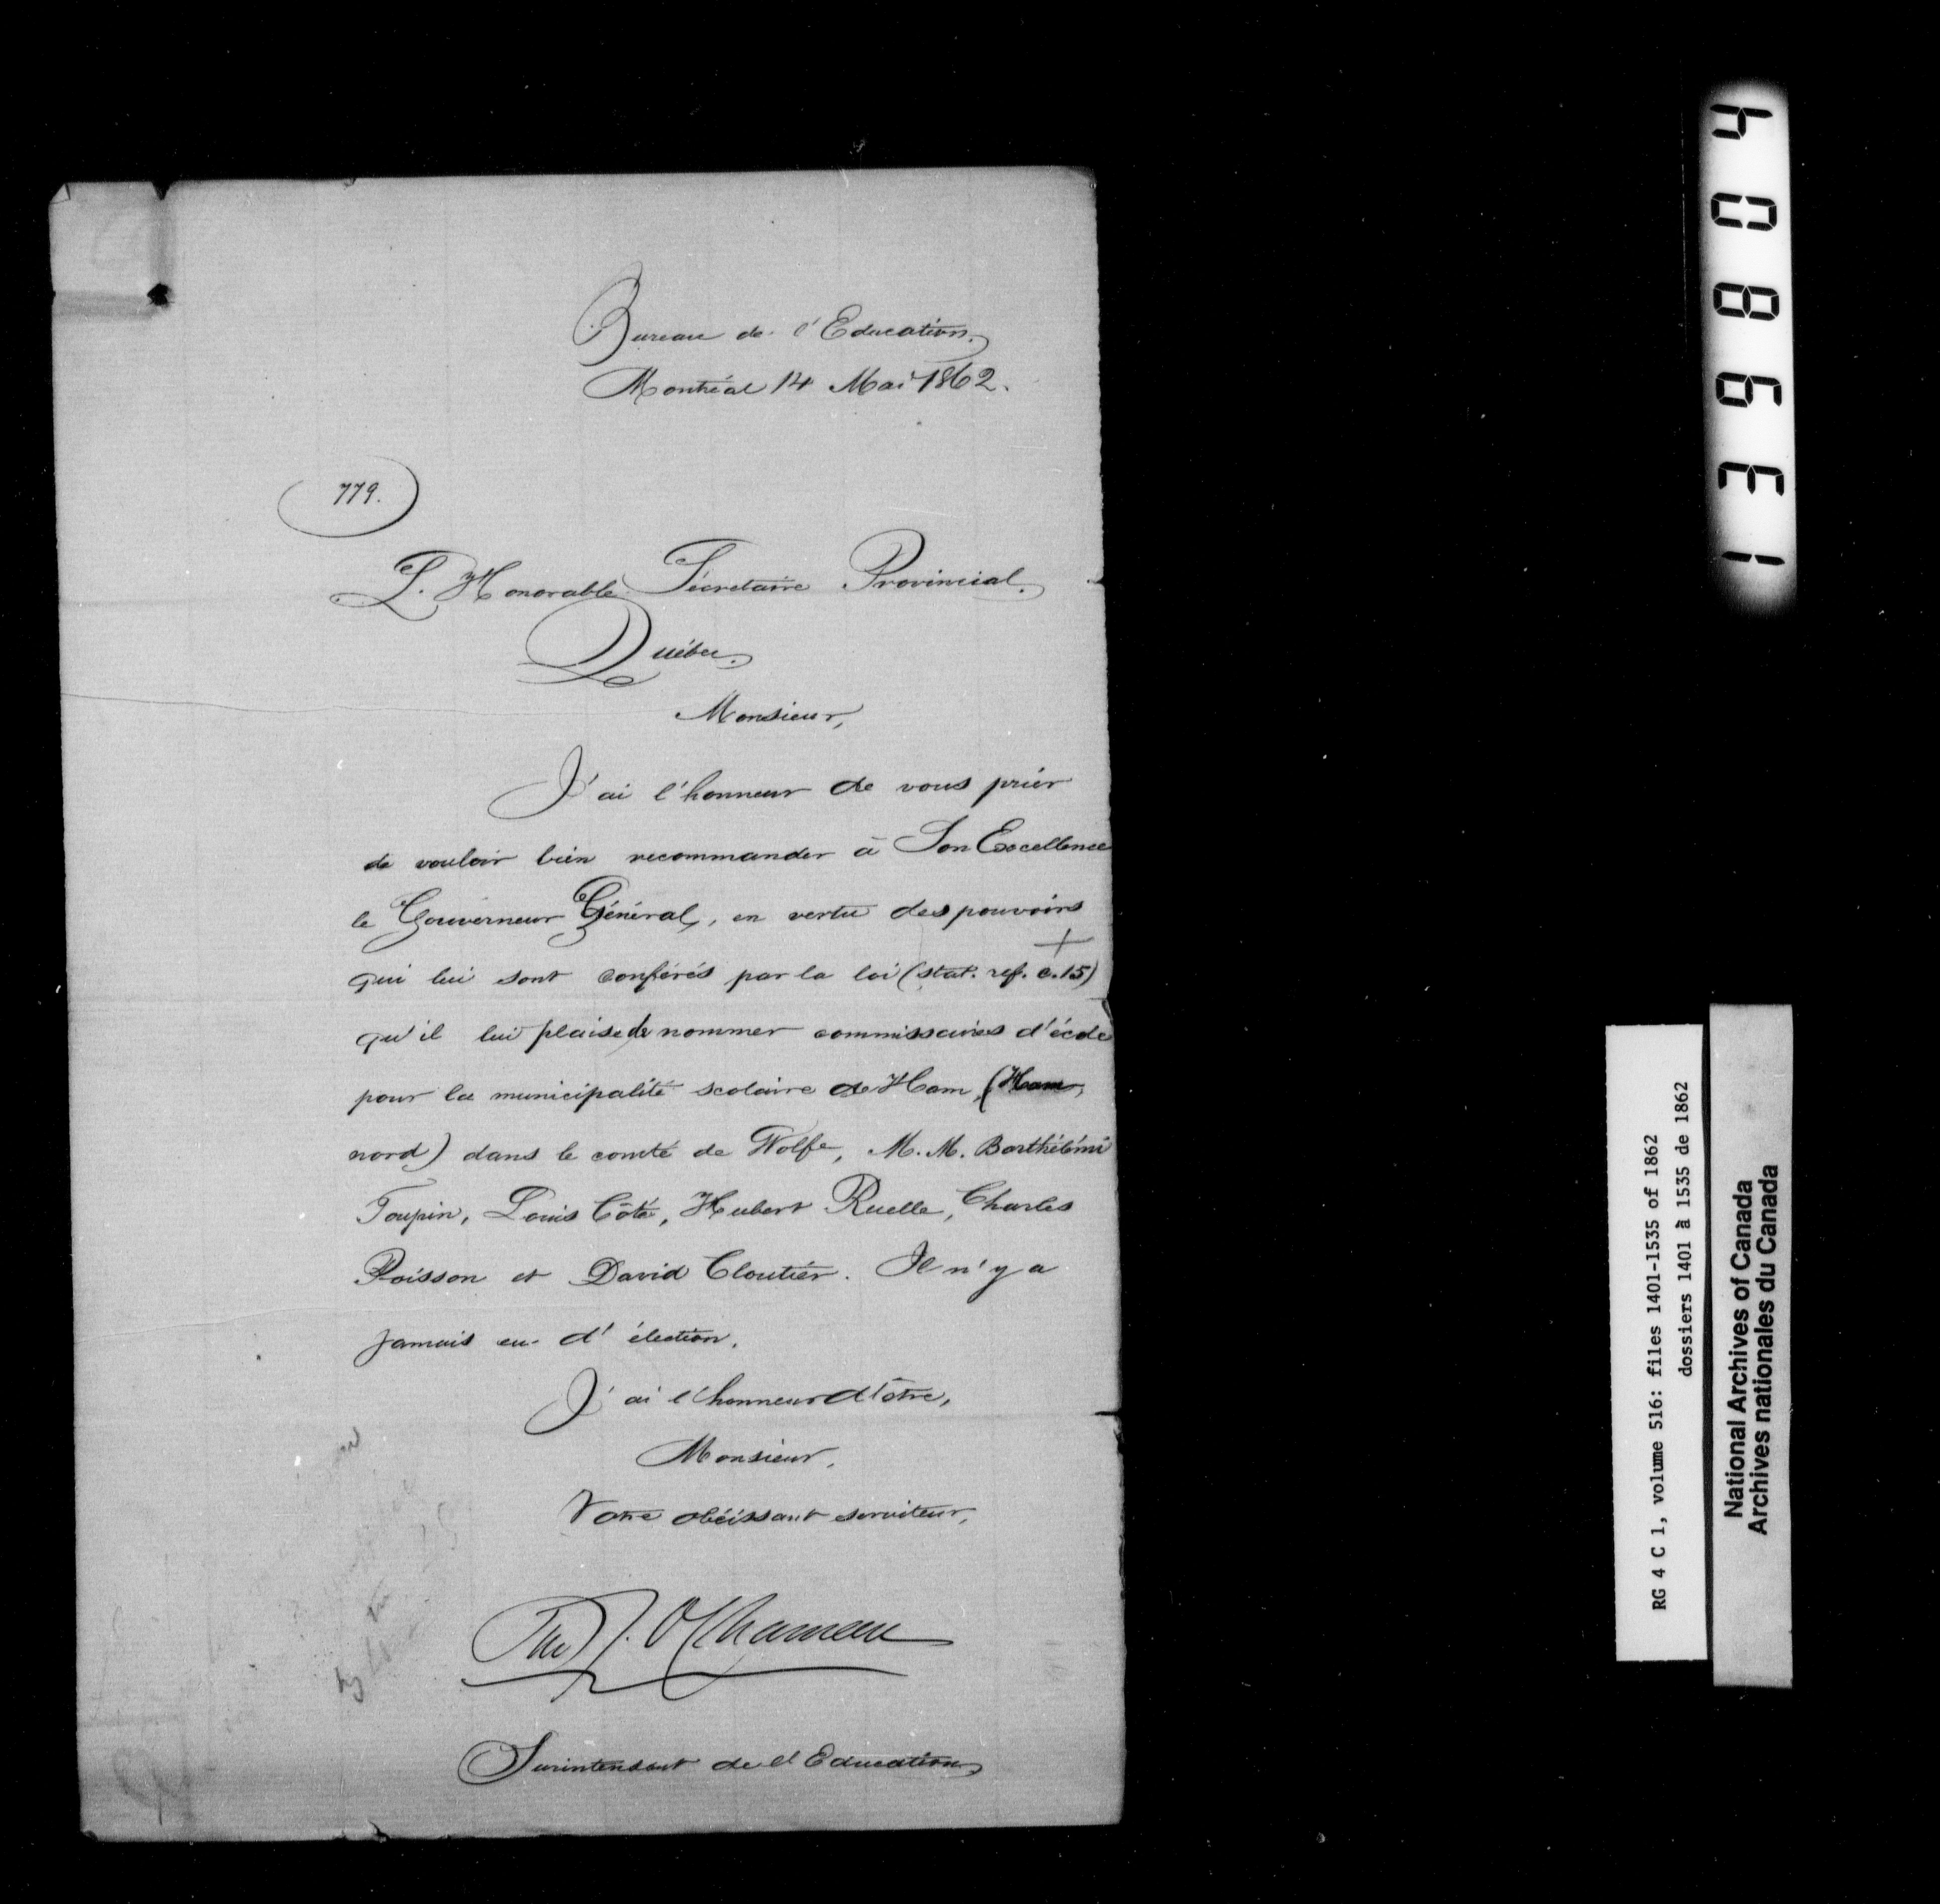 Bureau de l'Education.
Montréal 14 Mai 1862.
779.
L. Honorable Sécretaire Provincial.
Québec.
Monsieur,
J'ai l'honneur de vous prier
de vouloir bien recommander à Son Excellence
le Gouverneur Général, en vertu des pouvoirs
qui lui sont conférés par la loi (stat. ref. c. 15)
qu'il lui plaise de nommer commissaires d'école
pour la municipalité scolaire de Ham, (Ham,
nord) dans le comté de Wolfe, M. M. Barthélémi
Toupin, Louis Côté, Hubert Ruelle, Charles
Poisson et David Cloutier. Il n'y a
jamais eu d'élection.
J'ai l'honneur d'être,
Monsieur,
Votre obéissant serviteur,
Surintendant de l'Education
138804
RG 4 C 1, volume 516: files 1401-1535 of 1862
dossiers 1401 à 1535 de 1862
National Archives of Canada
Archives nationales du Canada